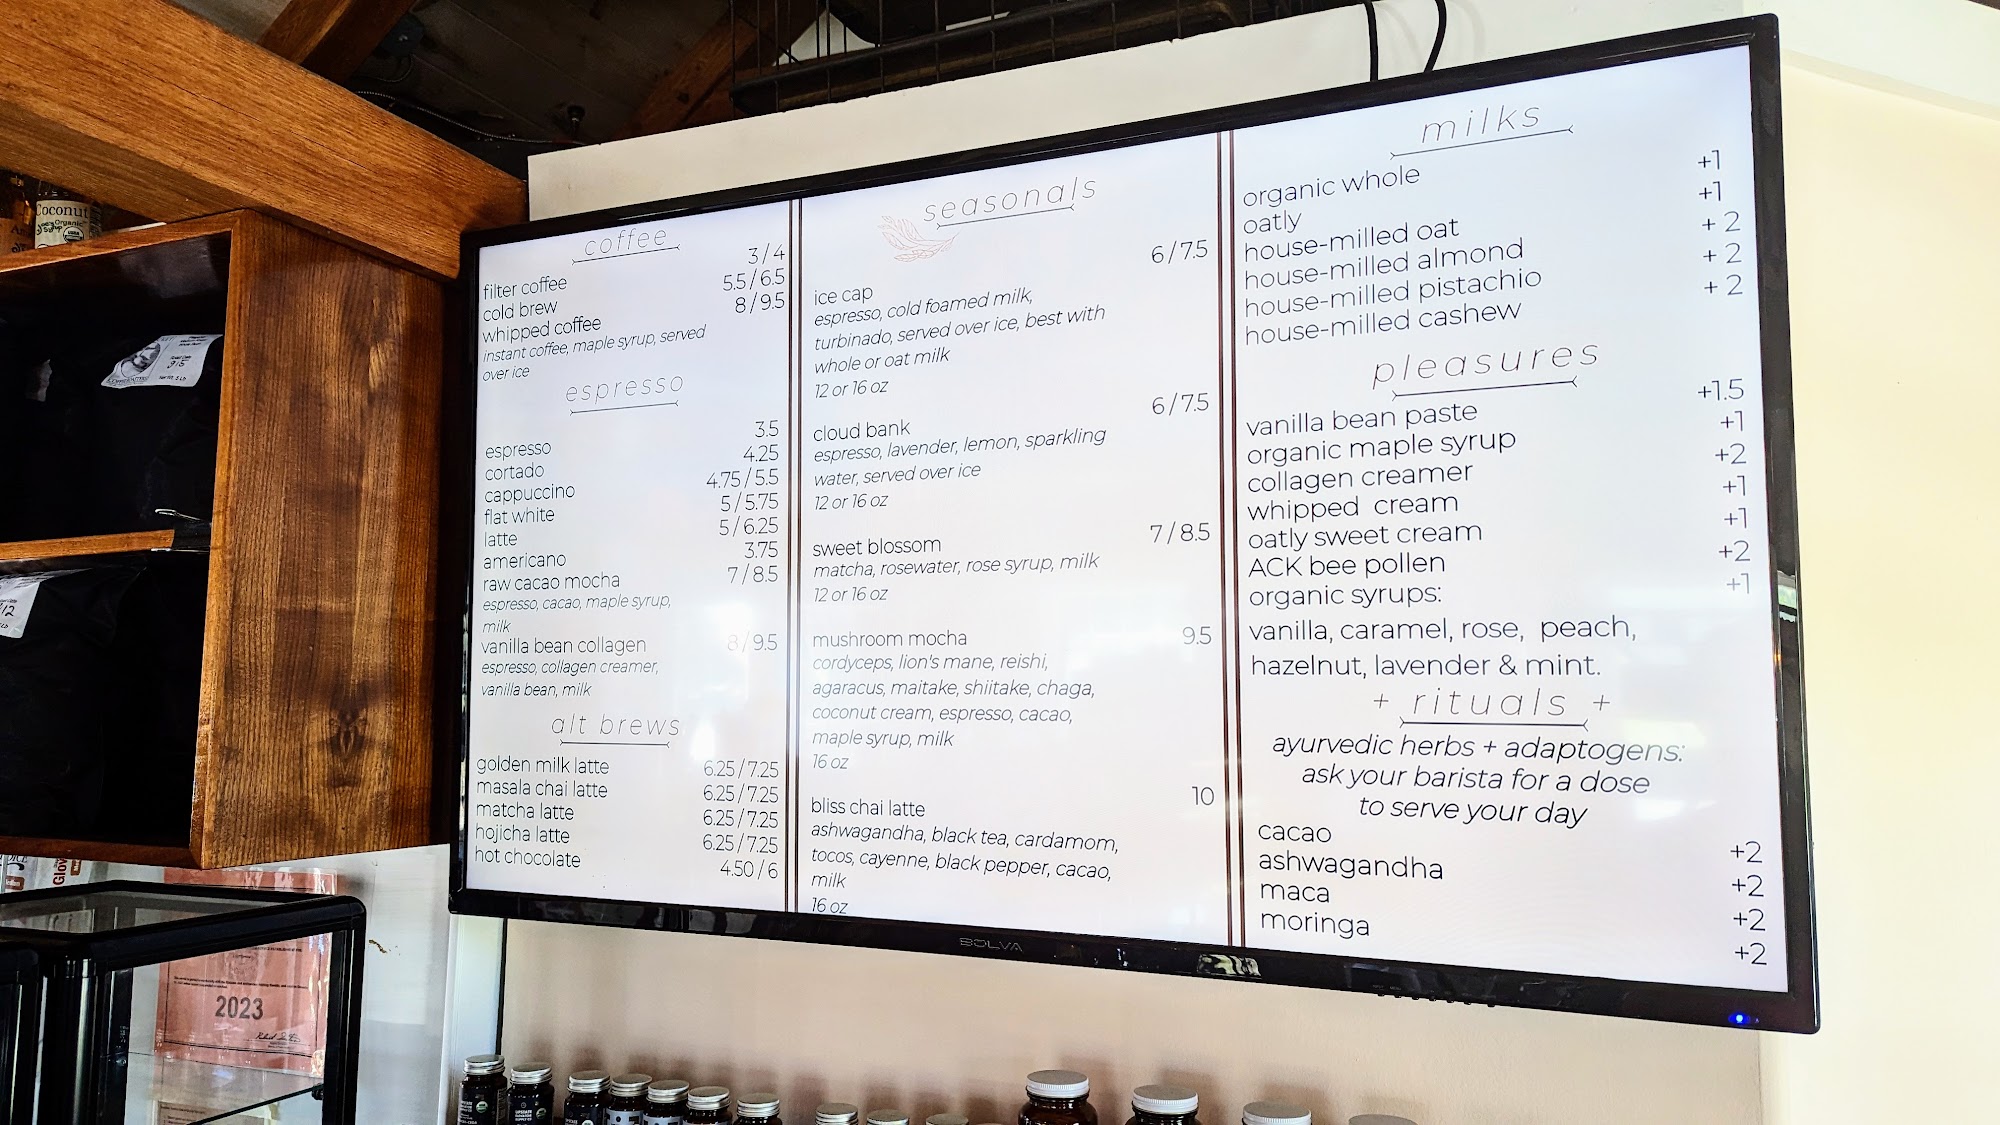 coffee
filter coffee 3/4
cold brew 5.5/6.5
whipped coffee 8/9.5
instant coffee, maple syrup, served
over ice
espresso
espresso 3.5
cortado 4.25
cappuccino 4.75/5.5
flat white 5/5.75
latte 5/6.25
americano 3.75
raw cacao mocha 7/8.5
espresso, cacao, maple syrup,
milk
vanilla bean collagen 8/9.5
espresso, collagen creamer,
vanilla bean, milk
alt brews
golden milk latte 6.25/7.25
masala chai latte 6.25/7.25
matcha latte 6.25/7.25
hojicha latte 6.25/7.25
hot chocolate 4.50/6
seasonals
ice cap 6/7.5
espresso, cold foamed milk,
turbinado, served over ice, best with
whole or oat milk
12 or 16 oz
cloud bank 6/7.5
espresso, lavender, lemon, sparkling
water, served over ice
12 or 16 oz
sweet blossom 7/8.5
matcha, rosewater, rose syrup, milk
12 or 16 oz
mushroom mocha 9.5
cordyceps, lion's mane, reishi,
agaracus, maitake, shiitake, chaga,
coconut cream, espresso, cacao,
maple syrup, milk
16 oz
bliss chai latte 10
ashwagandha, black tea, cardamom,
tocos, cayenne, black pepper, cacao,
milk
16 oz
milks
organic whole
oatly +1
house-milled oat +1
house-milled almond +2
house-milled pistachio +2
house-milled cashew +2
pleasures
vanilla bean paste +1.5
organic maple syrup +1
collagen creamer +2
whipped cream +1
oatly sweet cream +1
ACK bee pollen +2
organic syrups: +1
vanilla, caramel, rose, peach,
hazelnut, lavender & mint.
+ rituals +
ayurvedic herbs + adaptogens:
ask your barista for a dose
to serve your day
cacao +2
ashwagandha +2
maca +2
moringa +2
BOLVA
Coconut
Organic
2023